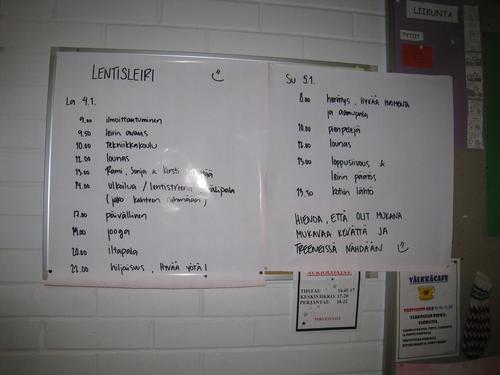 LENTISLEIRI
La 4.1.
9.00 ilmoittautuminen
9.50 leirin avaus
10.00 tekniikkakoulu
12.00 lounas
13.00 Rami, Sonja & Kirsti
14.00 ulkoilua / lentistreeni välipala
(jako kahteen ryhmään)
17.00 päivällinen
19.00 jooga
20.00 iltapala
21.00 hiljaisuus, HYVÄÄ YÖTÄ!
Su 5.1.
8.00 herätys, HYVÄÄ HUOMENTA
ja aamupala
10.00 pienpelejä
12.00 lounas
13.00 loppusiivous &
leirin päätös
13.30 kotiin lähtö
HIENOA, ETTÄ OLIT MUKANA.
MUKAVAA KEVÄTTÄ JA
TREENEISSÄ NÄHDÄÄN
LIIKUNTA
TYTÖT
AUKIOLOAJAT
TIISTAI 14.45-17
KESKIVIIKKO 17-20
PERJANTAI 18-22
TERVETULOA
VÄLKKÄCAFE